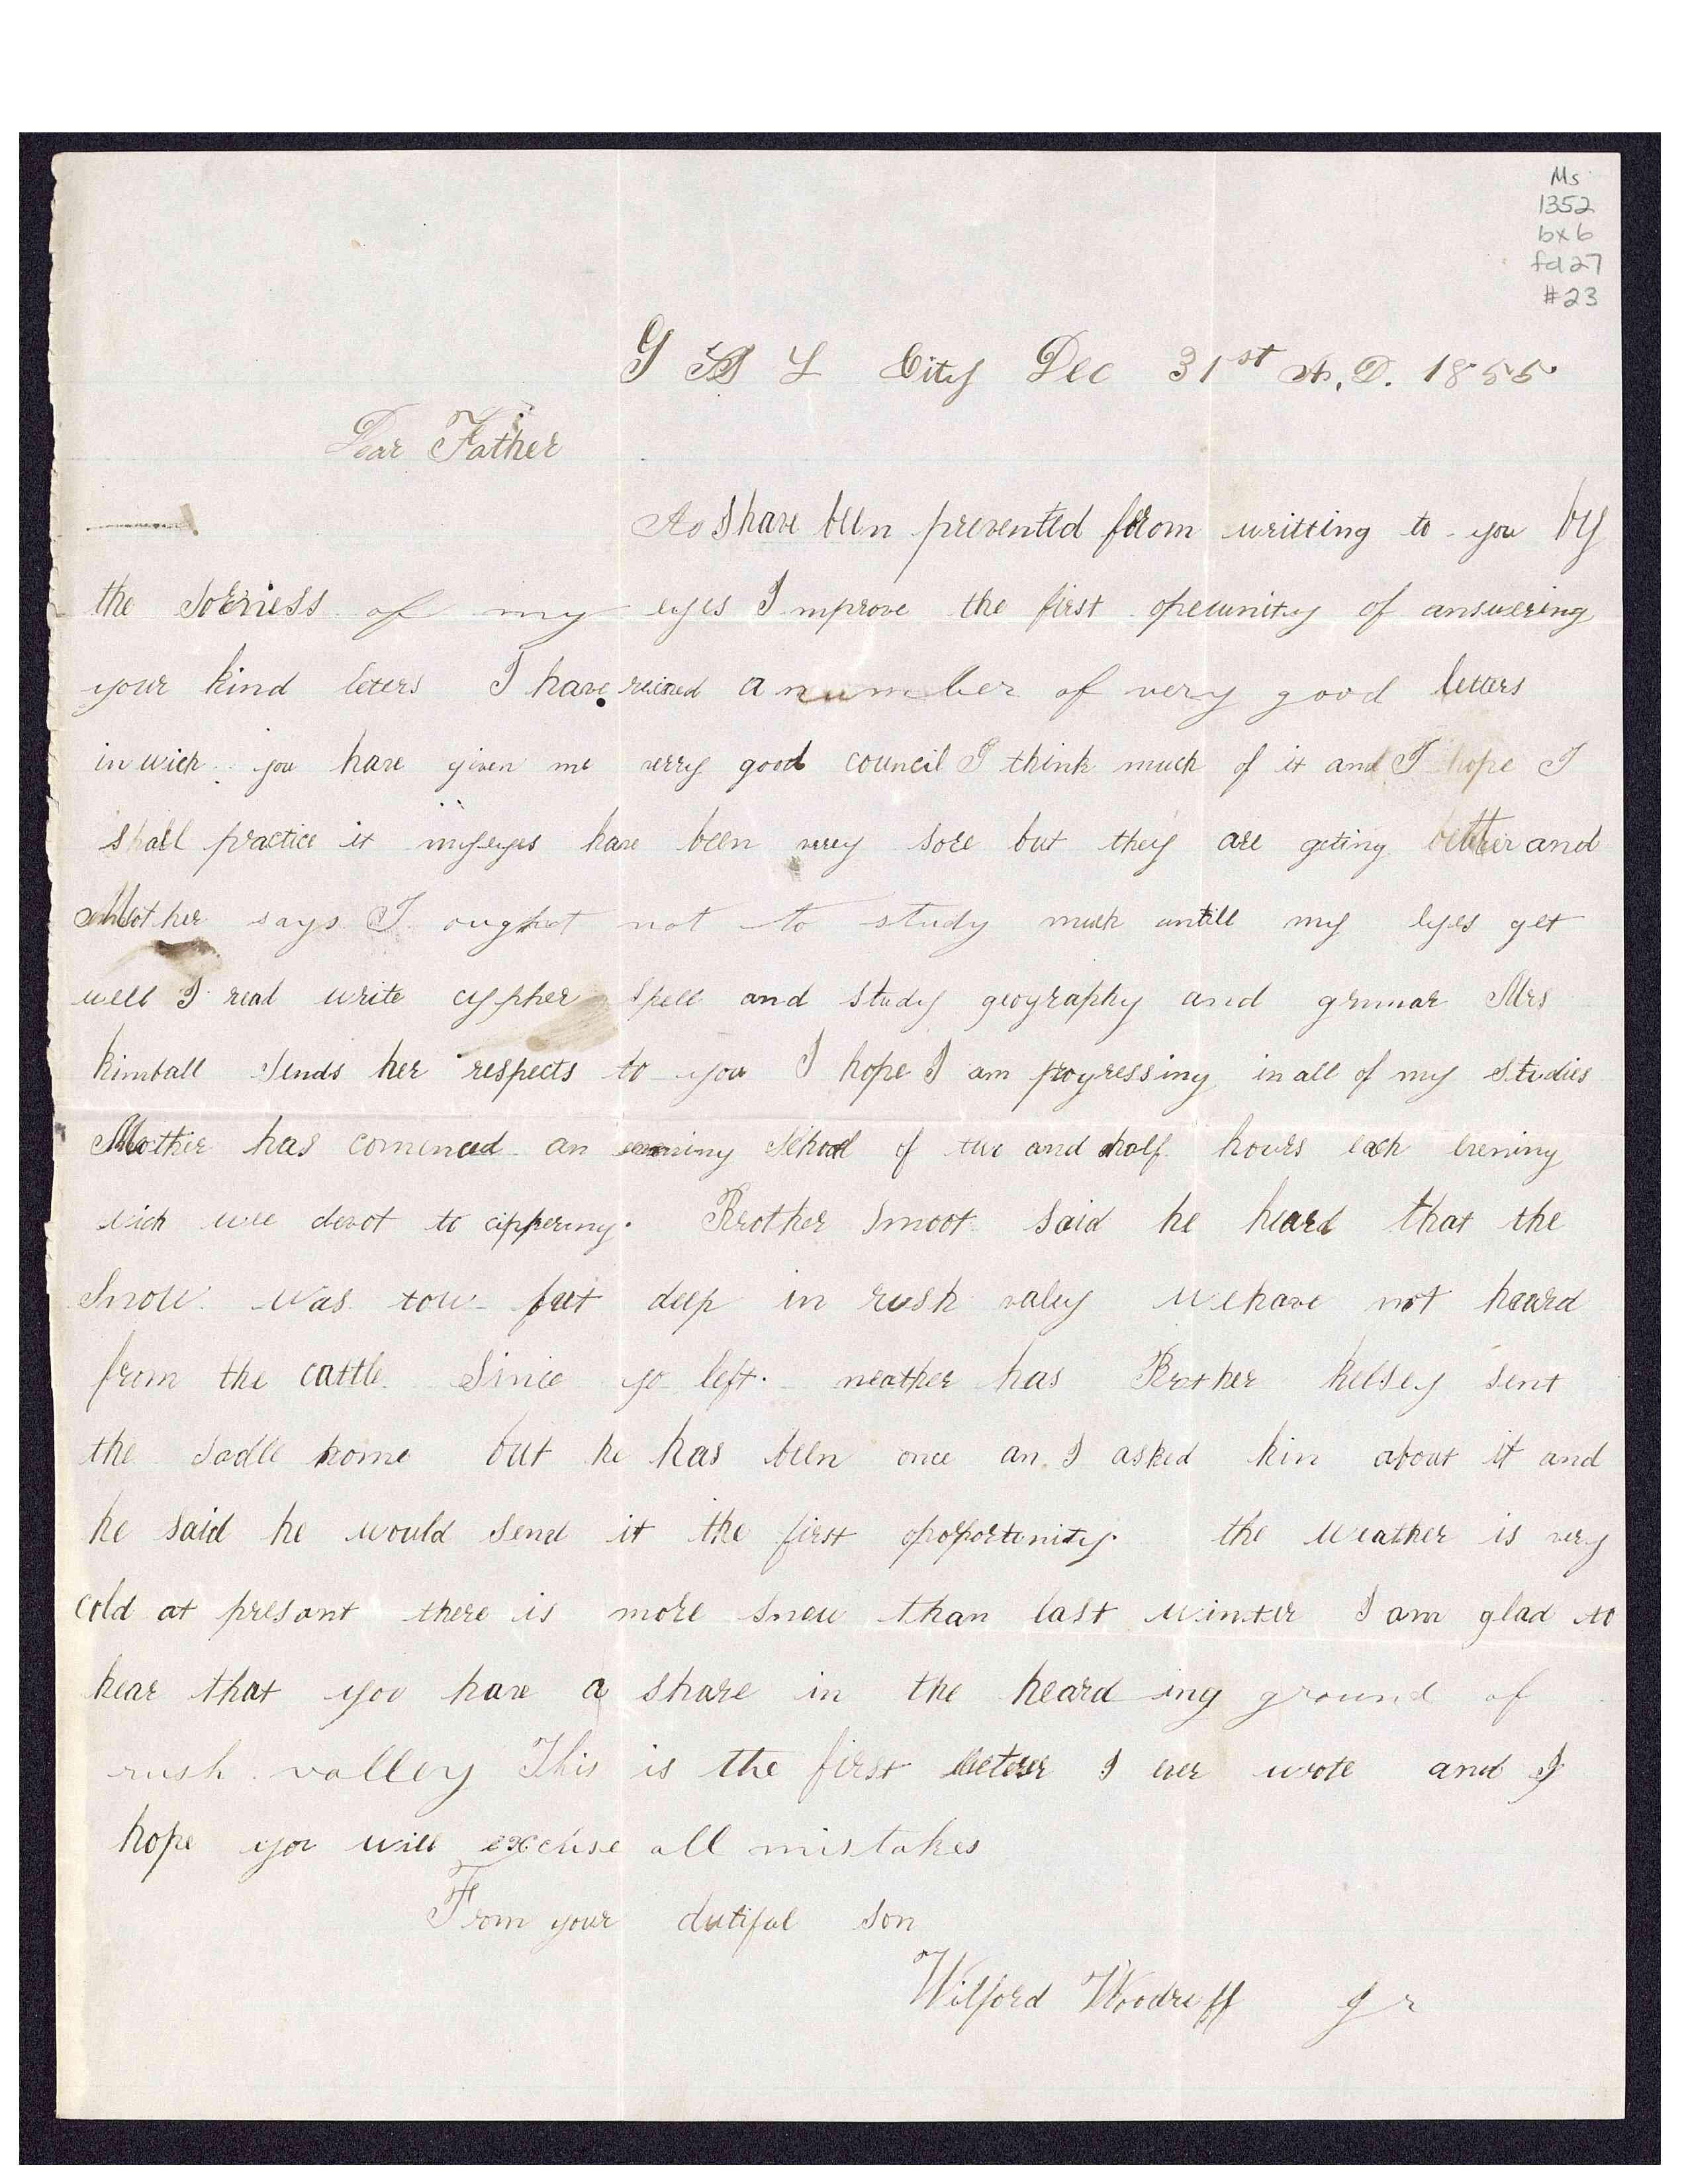 Ms
1352
bx 6
fd 27
#23
G S L City Dec 31st A.D. 1855
Dear Father
As I have been prevented from writting to you by
the soerness of my eyes I improve the first opeunity of answering
your kind leters I have recived a number of very good letters
in wich you have given me verry good council I think much of it and I hope I
shall practice it my eyes have been verey sore but they are geting better and
Mother says I ought not to study much untill my eyes get
well I read write cypher spell and study geography and grmar Mrs
kimball sends her respects to you I hope I am progressing in all of my studies
Mother has comenced an evening School of two and half hours each evening
wich we devot to ciphering. Brother Smoot said he heard that the
Snow was tow feet deep in rush valey we have not heard
from the cattle Since yo left. neather has Brother kelsey sent
the sadle home but he has been once an I asked him about it and
he said he would send it the first opoportunity. the weather is very
cold at presant there is more snow than last winter I am glad to
hear that you have a share in the heard ing ground of
rush valley This is the first letter I ever wrote and I
hope you will excuse all mistakes
From your dutiful son
Wilford Woodruff Jr